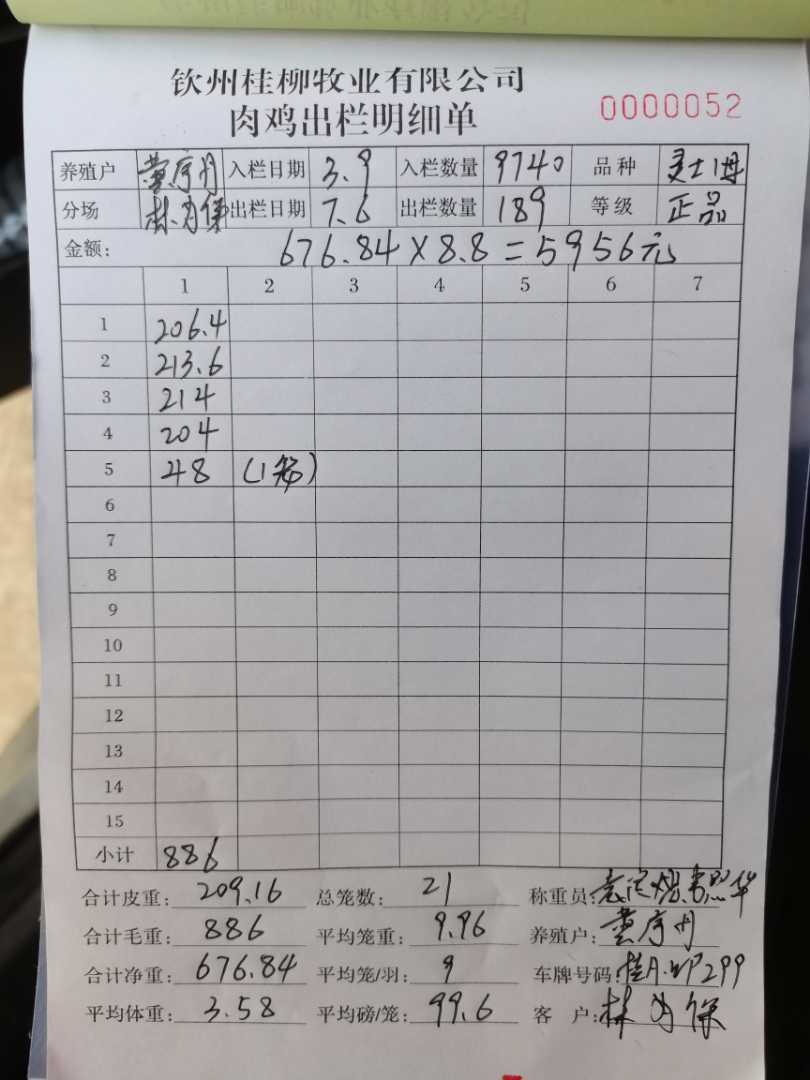 钦州桂柳牧业有限公司
肉鸡出栏明细单
0000052
养殖户 黄序月 入栏日期 3.9 入栏数量 9740 品种
分场 林为保 出栏日期 7.6 出栏数量 189 等级 正品
金额: 676.84×8.8=5956元
1 2 3 4 5 6 7
1 206.4
2 213.6
3 214
4 204
5 48 (1笼)
6
7
8
9
10
11
12
13
14
15
小计 886
合计皮重: 209.16 总笼数: 21 称重员:
合计毛重: 886 平均笼重: 9.96 养殖户: 黄序月
合计净重: 676.84 平均笼/羽: 9 车牌号码:
平均体重: 3.58 平均磅/笼: 99.6 客户: 林为保